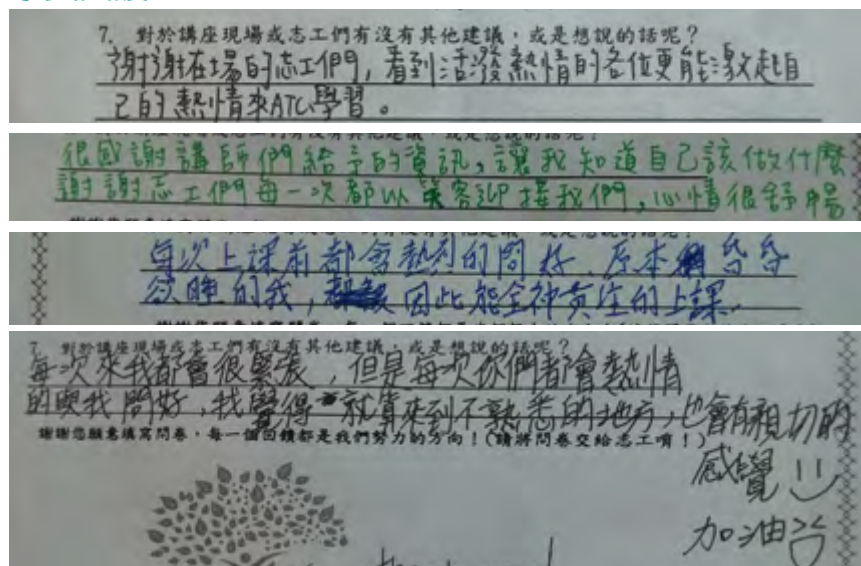 7. 對於講座現場或志工們有沒有其他建議，或是想說的話呢？
謝謝在場的志工們，看到活潑熱情的各位更能激起自
己的熱情來ATCL學習。
很感謝講師們給予的資訊，讓我知道自己該做什麼
謝謝志工們每一次都以笑容迎接我們，心情很舒暢
每次上課前都會熱烈的問好，原本昏昏
欲睡的我，因此能全神貫注的上課.
7. 對於講座現場或志工們有沒有其他建議，或是想說的話呢？
每次來我都會很緊張，但是每次你們都會熱情
的與我問好，我覺得就算來到不熟悉的地方，也會有親切的
謝謝您願意填寫問卷，每一個回饋都是我們努力的方向！(請將問卷交給志工唷！)
感覺
加油